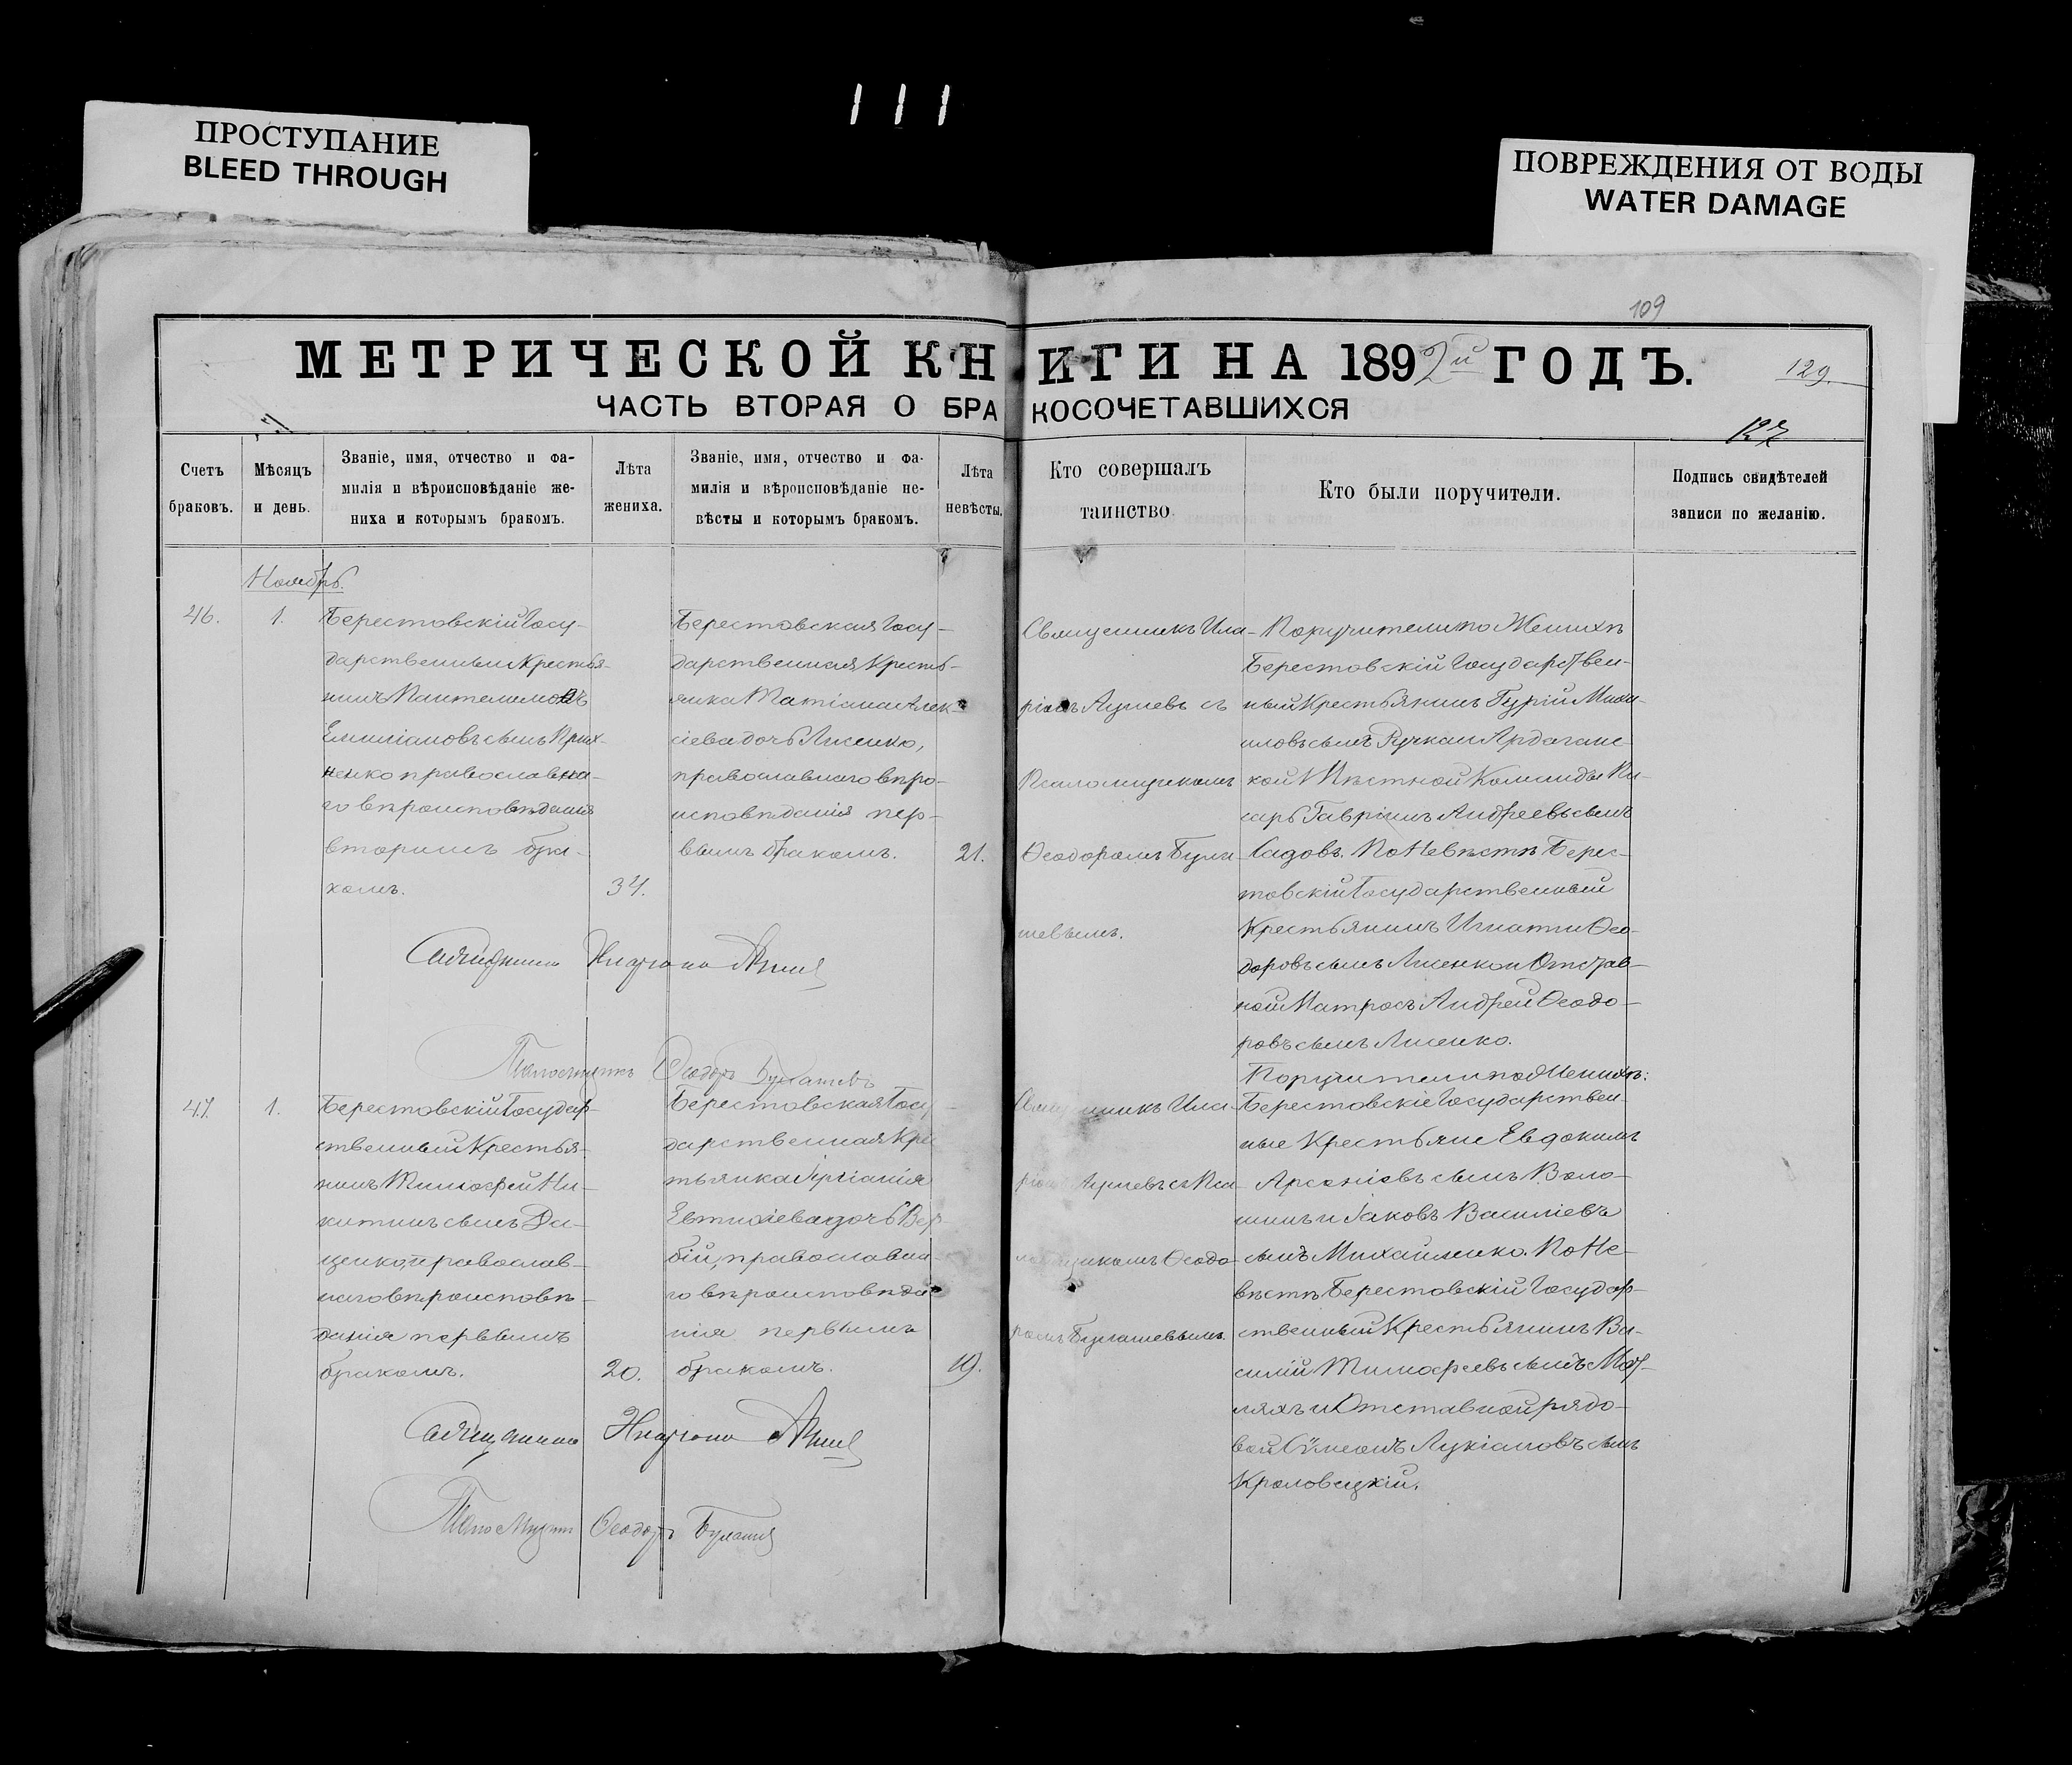 ПРОСТУПАНИЕ
BLEED THROUGH
ПОВРЕЖДЕНИЯ ОТ ВОДЫ
WATER DAMAGE
109
МЕТРИЧЕСКОЙ КНИГИ НА 1892й ГОДЪ.
129.
ЧАСТЬ ВТОРАЯ О БРАКОСОЧЕТАВШИХСЯ
127
Счетъ
браковъ.
Мѣсяцъ
и день.
Званіе, имя, отчество и фа-
милія и вѣроисповѣданіе же-
ниха и которымъ бракомъ.
Лѣта
жениха.
Званіе, имя, отчество и фа-
милія и вѣроисповѣданіе не-
вѣсты и которымъ бракомъ.
Лѣта
невѣсты.
Кто совершалъ
таинство
Кто были поручители.
Подпись свидѣтелей
записи по желанію.
Ноябрь.
46.
1.
Берестовскій Госу-
дарственный Крестья-
нинъ Пантелимонъ
Емиліановъ сынъ
православна-
го вѣроисповѣданія
вторымъ бра-
комъ.
34.
Берестовская Госу-
дарственная Кресть-
янка Татіана Алек-
сіева дочь Лисенко,
православнаго вѣро-
исповѣданія пер-
вымъ бракомъ.
21.
Священникъ Ила-
ріонъ съ
Псаломщикомъ
Ѳеодоромъ Була-
шевымъ.
Поручители по Женихѣ
Берестовскій Государствен-
ный Крестьянинъ Гурій Миха-
иловъ сынъ
кой Мѣстной Команды Пи-
сарь Гавріилъ Андреевъ сынъ
Садовъ. По Невѣстѣ Берес-
товскій Государственный
Крестьянинъ Игнатій Ѳео-
доровъ сынъ Лисенко и Отстав-
ной Матросъ Андрей Ѳеодо-
ровъ сынъ Лисенко.
Священникъ Иларіонъ
Псаломщикъ Ѳеодоръ Булашевъ
47.
1.
Берестовскій Государ-
ственный Крестья-
нинъ Тимоѳей Ни-
китинъ сынъ Да-
ценко, православ-
наго вѣроисповѣ-
данія первымъ
бракомъ.
20.
Берестовская Госу-
дарственная Крес
тьянка
Евтихіева дочь Вер-
бій, православна-
го вѣроисповѣда-
нія первымъ
бракомъ.
19.
Священникъ Ила-
ріонъ съ Пса-
ломщикомъ Ѳеодо-
ромъ Булашевымъ.
Поручители по Женихѣ:
Берестовскіе Государствен-
ные Крестьяне Евдокимъ
Арсеніевъ сынъ Воло-
шинъ и Іаковъ Василіевъ
сынъ Михайленко. По Не-
вѣстѣ Берестовскій Государ-
ственный Крестьянинъ Ва-
силій Тимоѳеевъ сынъ
и Отставной рядо-
вой Сѵмеонъ Лукіановъ сынъ
Кроловецкій.
Священникъ Иларіонъ
Псаломщикъ Ѳеодоръ Булашевъ